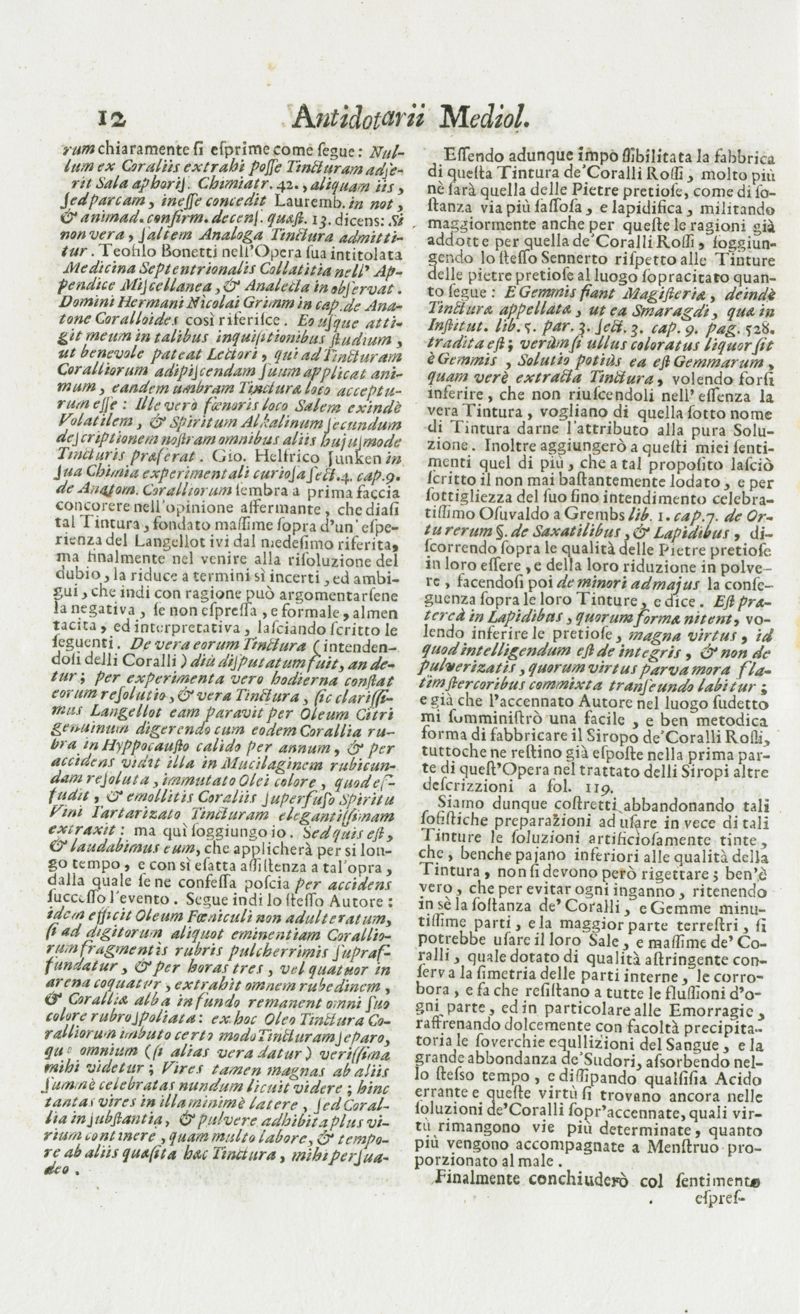 12 Antidotarii Mediol.
rum chiaramente ſi eſprime come ſegue: Nul-
lum ex Coraliis extrahi poſſe Tincturam adſe-
rit Sala aphoriſ. Chimiatr. 42., aliquam iis,
ſed parcam, ineſſe concedit Lauremb. in not,
& animad. confirm. decenſ. quæſt. 13. dicens: Si
non vera, ſaltem Analoga Tinctura admitti-
tur. Teofilo Bonetti nell'Opera ſua intitolata
Medicina Septentrionalis Collatitia nell' Ap-
pendice Miſcellanea, & Analecta in obſervat.
Domini Hermani Nicolai Grimm in cap. de Ana-
tone Coralloides così riferiſce. Eo uſque atti-
git meum in talibus inquiſitionibus ſtudium,
ut benevole pateat Lectori, qui ad Tincturam
Coralliorum adipiſcendam ſuum applicat ani-
mum, eandem umbram Tinctura loco acceptu-
rum eſſe: Ille vero fœnoris loco Salem exindè
Volatilem, & Spiritum Alkalinum ſecundum
deſcriptionem noſtram omnibus aliis hujuſmode
Tincturis præferat. Gio. Helfrico Junken in
ſua Chimia experimentali curioſa ſect. 4. cap. 9.
de Anatom. Coralliorum ſembra a prima faccia
concorere nell'opinione affermante, che diaſi
tal Tintura, fondato maſſime ſopra d'un' eſpe-
rienza del Langellot ivi dal medeſimo riferita,
ma finalmente nel venire alla riſoluzione del
dubio, la riduce a termini sì incerti, ed ambi-
gui, che indi con ragione può argomentarſene
la negativa, ſe non eſpreſſa, e formale, almen
tacita, ed interpretativa, laſciando ſcritto le
ſeguenti. De vera eorum Tinctura (intenden-
doſi delli Coralli) diù diſputatum fuit, an de-
tur; per experimenta vero hodierna conſtat
eorum reſolutio, & vera Tinctura, ſic clariſſi-
mus Langellot eam paravit per Oleum Citri
genuinum digerendo cum eodem Corallia ru-
bra in Hyppocauſto calido per annum, & per
accidens vidit illa in Mucilaginem rubicun-
dam reſoluta, immutato Olei colore, quod eſ-
fudit, & emollitis Coraliis ſuperfuſo Spiritu
Vini Tartarizato Tincturam elegantiſſimam
extraxit: ma quì ſoggiungo io. Sed quis eſt,
& laudabimus eum, che applicherà per sì lon-
go tempo, e con sì eſatta aſſiſtenza a tal'opra,
dalla quale ſe ne confeſſa poſcia per accidens
ſucceſſo l'evento. Segue indi lo ſteſſo Autore:
idem efficit Oleum Fœniculi non adulteratum,
ſi ad digitorum aliquot eminentiam Corallio-
rum fragmentis rubris pulcherrimis ſupraf-
fundatur, & per horas tres, vel quatuor in
arena coquatur, extrahit omnem rubedinem,
& Corallia alba in fundo remanent omni ſuo
colore rubro ſpoliata: ex hoc Oleo Tinctura Co-
ralliorum imbuto certo modo Tincturam ſeparo,
quæ omnium (ſi alias vera datur) veriſſima
mihi videtur; Vires tamen magnas ab aliis
ſummè celebratas nundum licuit videre; hinc
tantas vires in illa minimè latere, ſed Coral-
lia in ſubſtantia, & pulvere adhibita plus vi-
rium continere, quam multo labore, & tempo-
re ab aliis quæſita hæc Tinctura, mihi perſua-
deo.
Eſſendo adunque impoſſibilitata la fabbrica
di queſta Tintura de'Coralli Roſſi, molto più
nè ſarà quella delle Pietre pretioſe, come di ſo-
ſtanza via più ſaſſoſa, e lapidifica, militando
maggiormente anche per queſte le ragioni già
addotte per quella de'Coralli Roſſi, ſoggiun-
gendo lo ſteſſo Sennerto riſpetto alle Tinture
delle pietre pretioſe al luogo ſopracitato quan-
to ſegue: E Gemmis fiant Magiſteria, deindè
Tinctura appellata, ut ea Smaragdi, quæ in
Inſtitut. lib. 5. par. 3. ſect. 3. cap. 9. pag. 528.
tradita eſt; verùm ſi ullus coloratus liquor ſit
è Gemmis, Solutio potiùs ea eſt Gemmarum,
quam verè extracta Tinctura, volendo forſi
inferire, che non riuſcendoli nell' eſſenza la
vera Tintura, vogliano di quella ſotto nome
di Tintura darne l'attributo alla pura Solu-
zione. Inoltre aggiungerò a queſti miei ſenti-
menti quel di più, che a tal propoſito laſciò
ſcritto il non mai baſtantemente lodato, e per
ſottigliezza del ſuo fino intendimento celebra-
tiſſimo Oſuvaldo a Grembs lib. 1. cap. 7. de Or-
tu rerum §. de Saxatilibus, & Lapidibus, di-
ſcorrendo ſopra le qualità delle Pietre pretioſe
in loro eſſere, e della loro riduzione in polve-
re, facendoſi poi de minori ad majus la conſe-
guenza ſopra le loro Tinture, e dice. Eſt præ-
tereà in Lapidibus, quorum forma nitent, vo-
lendo inferire le pretioſe, magna virtus, id
quod intelligendum eſt de integris, & non de
pulverizatis, quorum virtus parva mora ſta-
tim ſtercoribus commixta tranſeundo labitur;
e già che l'accennato Autore nel luogo ſudetto
mi ſumminiſtrò una facile, e ben metodica
forma di fabbricare il Siropo de'Coralli Roſſi,
tuttoche ne reſtino già eſpoſte nella prima par-
te di queſt'Opera nel trattato delli Siropi altre
deſcrizzioni a fol. 119.
Siamo dunque coſtretti abbandonando tali
ſofiſtiche preparazioni ad uſare in vece di tali
Tinture le ſoluzioni artificioſamente tinte,
che, benche pajano inferiori alle qualità della
Tintura, non ſi devono però rigettare; ben'è
vero, che per evitar ogni inganno, ritenendo
in sè la ſoſtanza de' Coralli, e Gemme minu-
tiſſime parti, e la maggior parte terreſtri, ſi
potrebbe uſare il loro Sale, e maſſime de' Co-
ralli, quale dotato di qualità aſtringente con-
ſerva la ſimetria delle parti interne, le corro-
bora, e fa che reſiſtano a tutte le fluſſioni d'o-
gni parte, ed in particolare alle Emorragie,
raffrenando dolcemente con facoltà precipita-
toria le ſoverchie equllizioni del Sangue, e la
grande abbondanza de'Sudori, aſſorbendo nel-
lo ſteſso tempo, e diſſipando qualſiſia Acido
errante e queſte virtù ſi trovano ancora nelle
ſoluzioni de'Coralli ſopr'accennate, quali vir-
tù rimangono vie più determinate, quanto
più vengono accompagnate a Menſtruo pro-
porzionato al male.
Finalmente conchiuderò col ſentimento
eſpreſ-